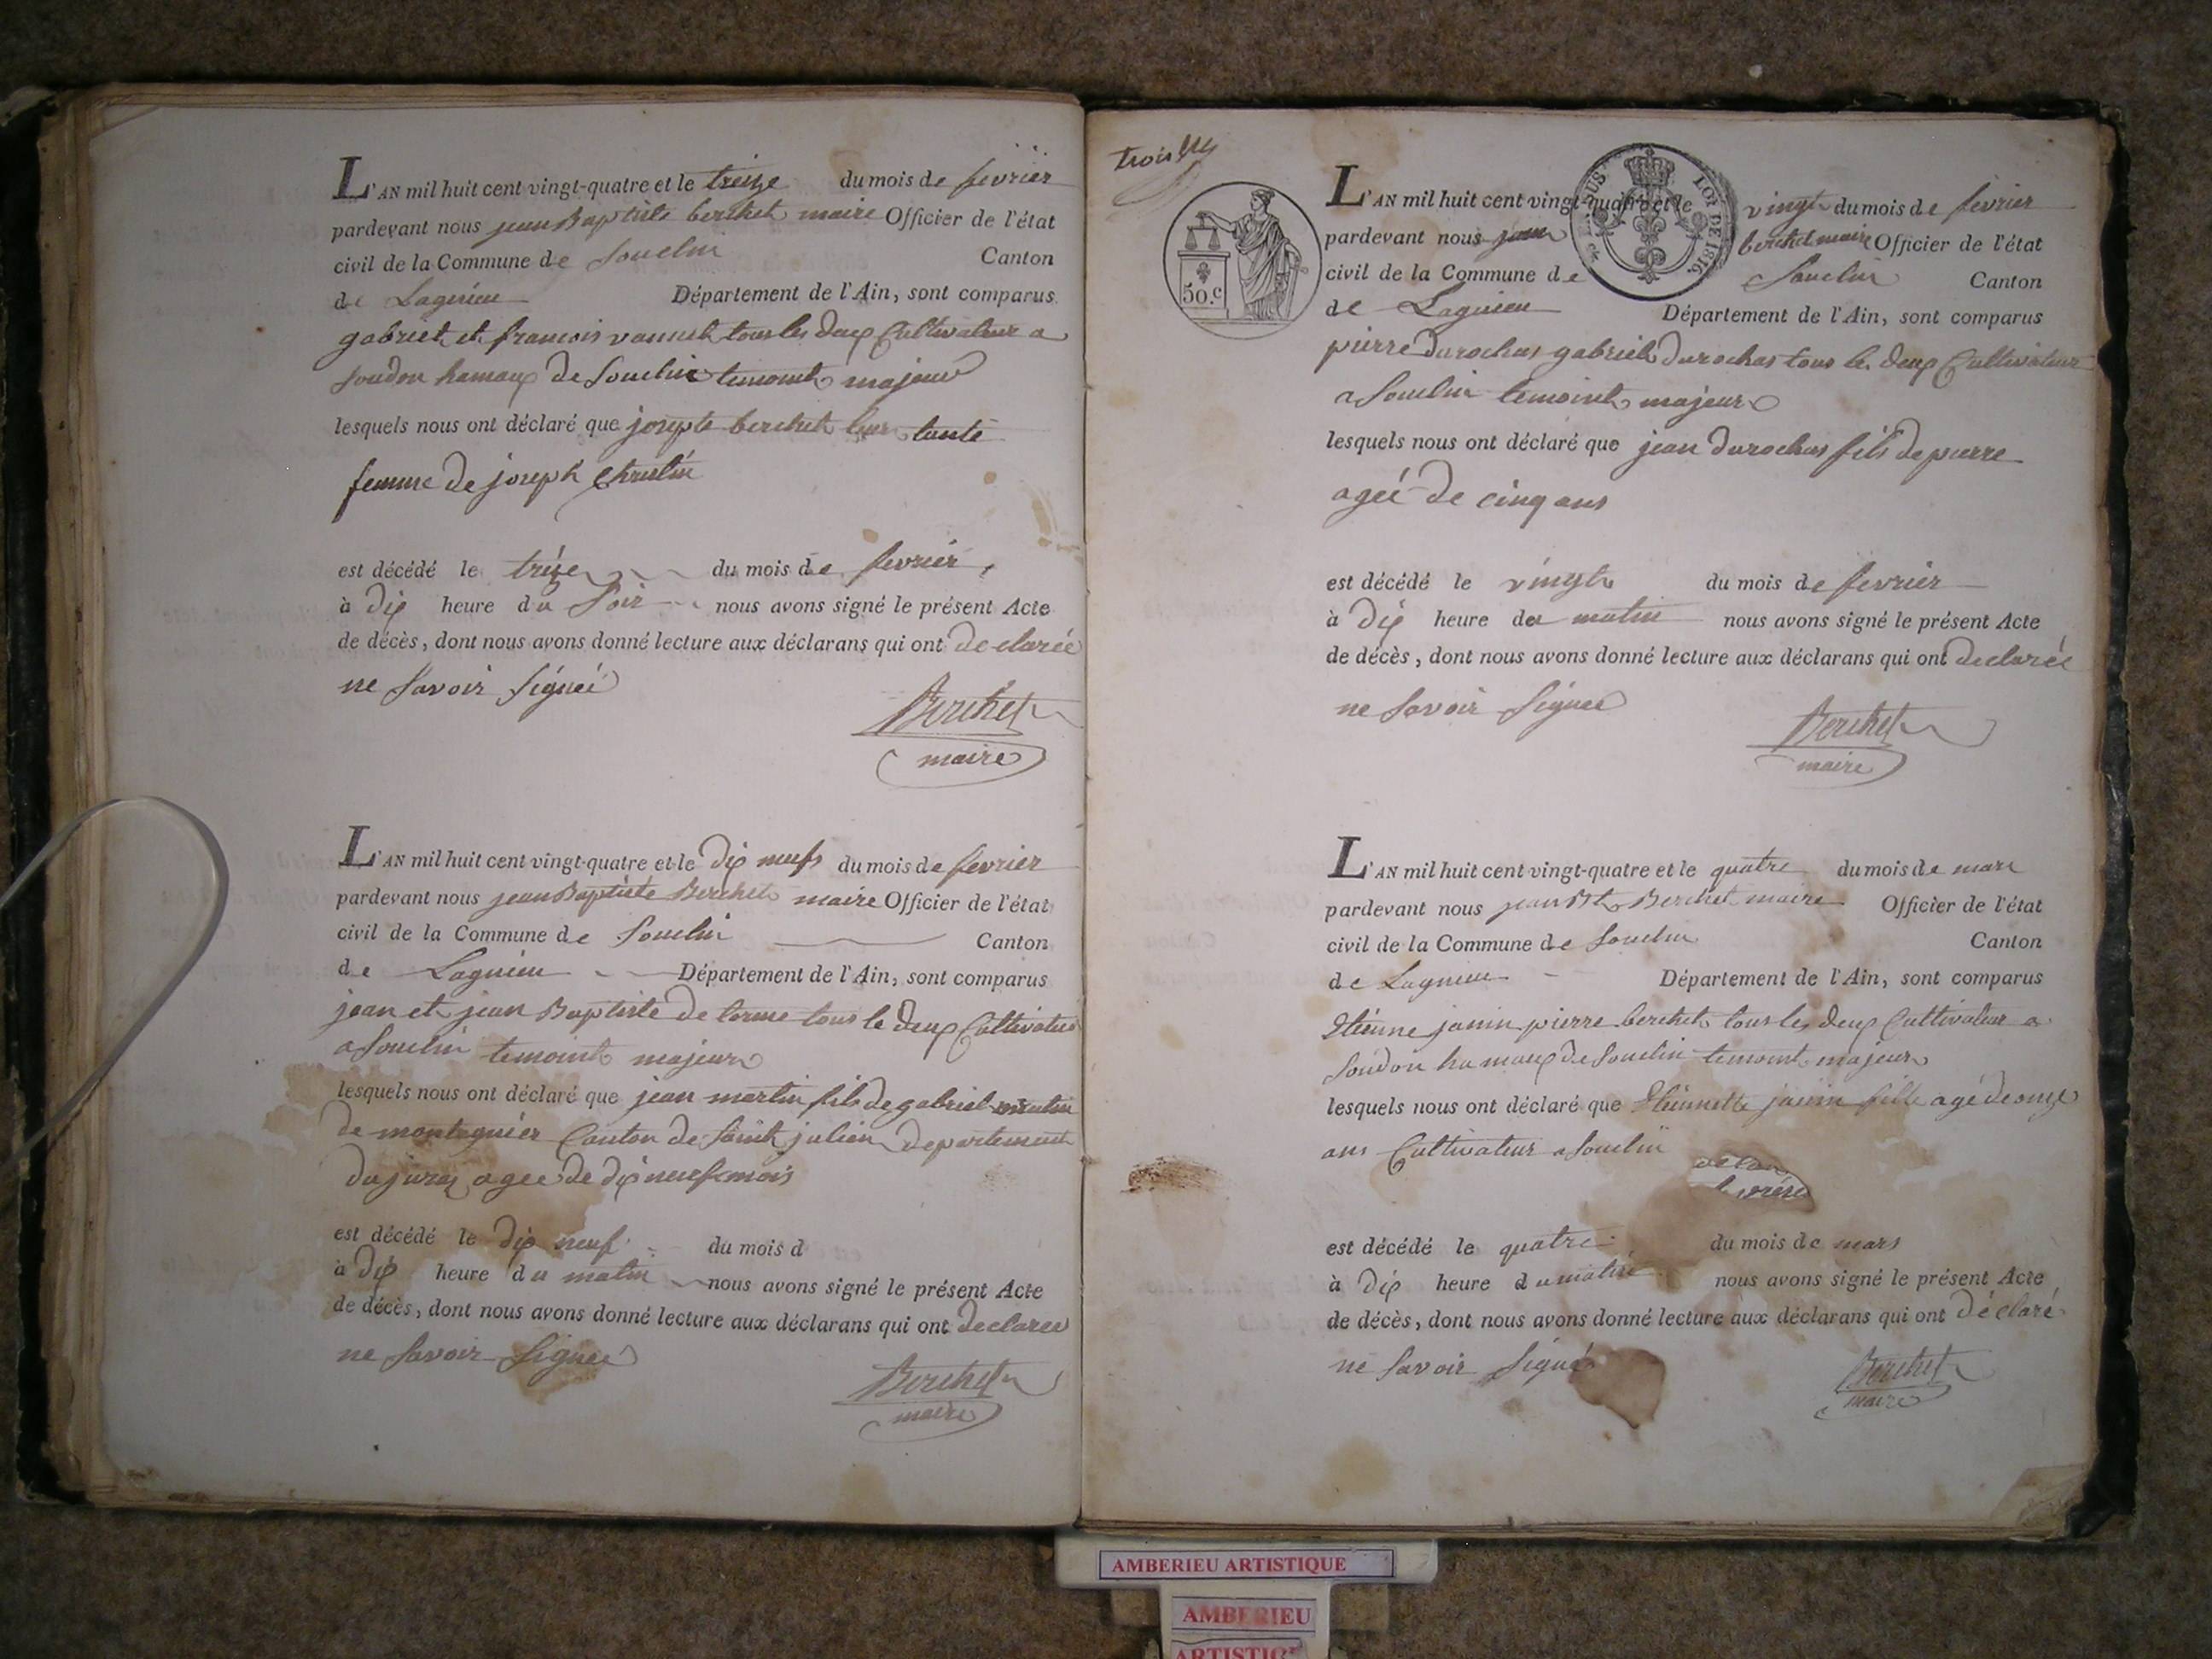 L'AN mil huit cent vingt-quatre et le treize du mois de fevrier
pardevant nous jean Baptiste berchet maire Officier de l'état
civil de la Commune de Souclin Canton
de Lagnieu Département de l'Ain, sont comparus
gabriel et francois vannet tous les deux Cultivateur a
soudon hamaux de Souclin temoint majeur
lesquels nous ont déclaré que josepte berchet leur tante
femme de joseph
est décédé le treize du mois de fevrier,
à dix heure du Soir nous avons signé le présent Acte
de décès, dont nous avons donné lecture aux déclarans qui ont declarée
ne Savoir Signeé
Berchet
maire
L'AN mil huit cent vingt-quatre et le dix neufs du mois de fevrier
pardevant nous jean Baptiste Berchet maire Officier de l'état
civil de la Commune de Souclin Canton
de Lagnieu Département de l'Ain, sont comparus
jean et jean Baptiste de lorme tous le deux Cultivateur
a Souclin temoint majeur
lesquels nous ont déclaré que jean martin fils de gabriel martin
de montagnier Canton de Saint julien departement
du jura agee de dix neuf mois
est décédé le dix neuf du mois d
à dix heure du matin nous avons signé le présent Acte
de décès, dont nous avons donné lecture aux déclarans qui ont declaree
ne Savoir Signeé
Berchet
maire
trois
50.c
LOI DE 1816.
L'AN mil huit cent vingt-quatre et le vingt du mois de fevrier
pardevant nous jean berchet maire Officier de l'état
civil de la Commune de Souclin Canton
de Lagnieu Département de l'Ain, sont comparus
pierre durochas gabriel durochas tous le deux Cultivateur
a Souclin temoint majeur
lesquels nous ont déclaré que jean durochas fils de pierre
ageé de cinq ans
est décédé le vingt du mois de fevrier
à dix heure du matin nous avons signé le présent Acte
de décès, dont nous avons donné lecture aux déclarans qui ont declarée
ne Savoir Signee
Berchet
maire
L'AN mil huit cent vingt-quatre et le quatre du mois de mars
pardevant nous jean Bt Berchet maire Officier de l'état
civil de la Commune de Souclin Canton
de Lagnieu Département de l'Ain, sont comparus
Etienne janin pierre berchet tous les deux Cultivateur a
Soudon hamaux de Souclin temoint majeur
lesquels nous ont déclaré que Etiennette janin fille agé de onze
ans Cultivateur a Souclin
est décédé le quatre du mois de mars
à dix heure du matin nous avons signé le présent Acte
de décès, dont nous avons donné lecture aux déclarans qui ont déclaré
ne Savoir Signé
Berchet
maire
AMBERIEU ARTISTIQUE
AMBERIEU
ARTISTIQ